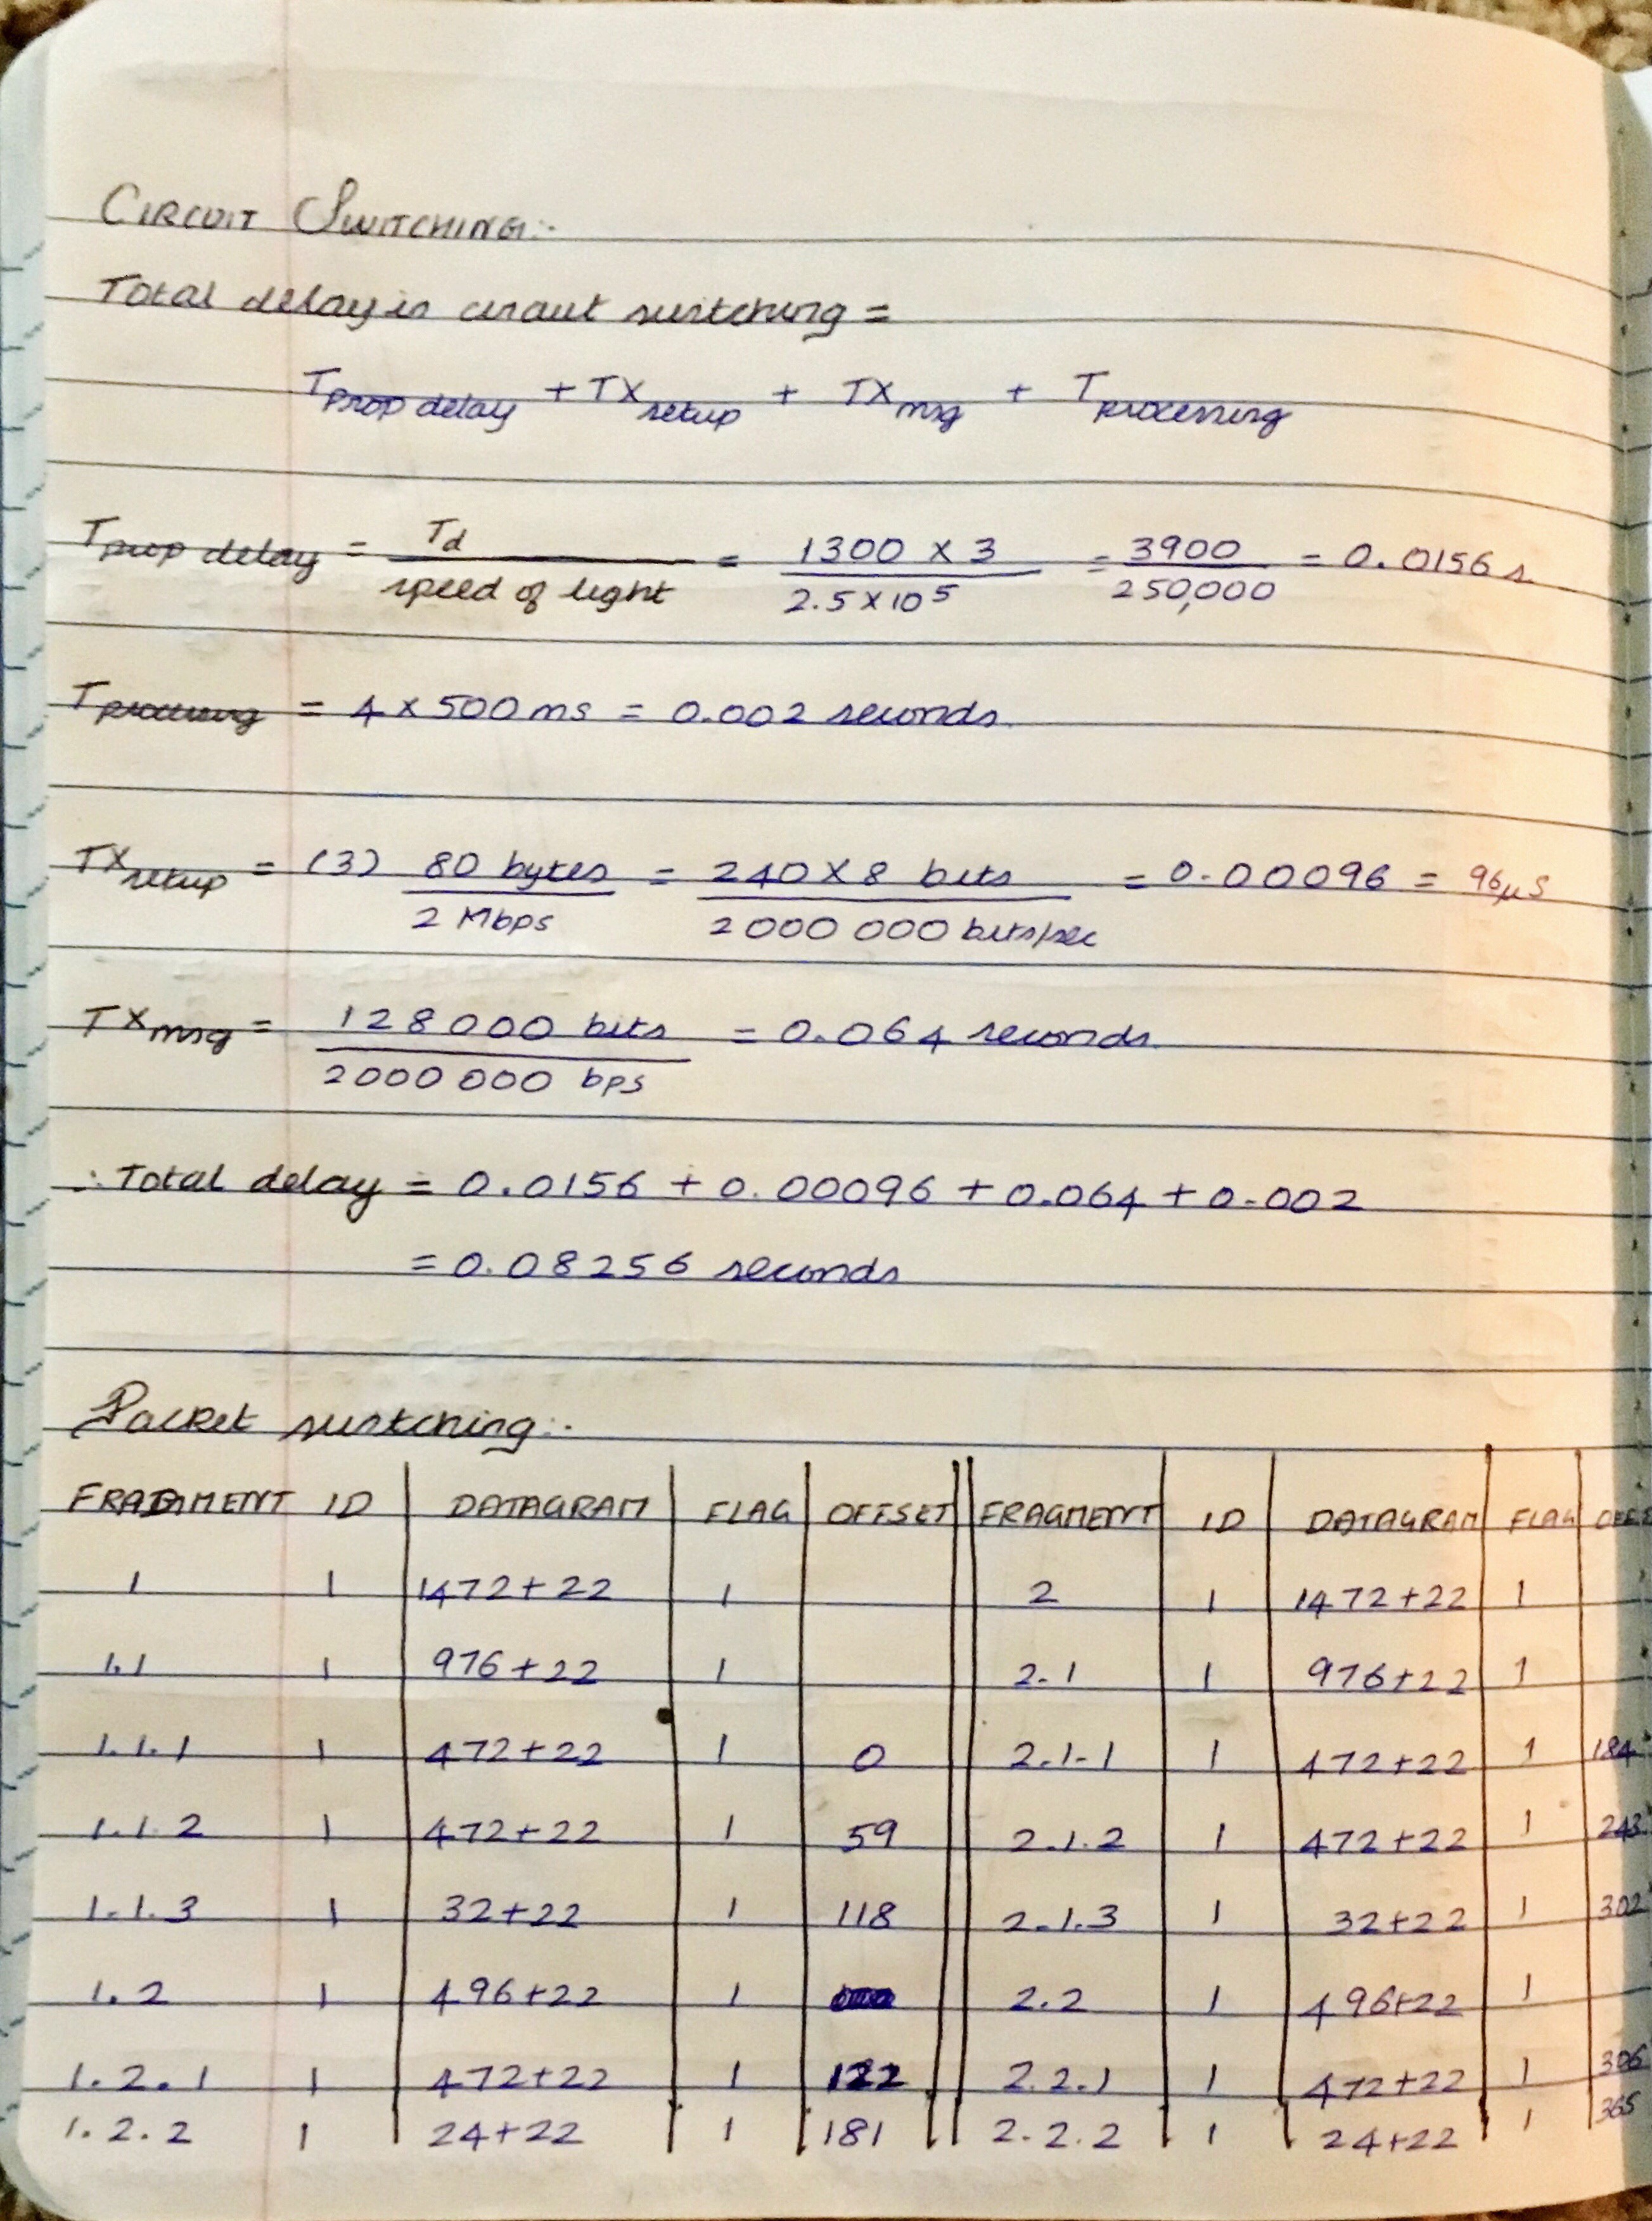 CIRCUIT SWITCHING:-
Total delay in circuit switching =
Tprop delay + TXsetup + TXmsg + Tprocessing
Tprop delay = Td / speed of light = 1300 x 3 / 2.5 x 10^5 = 3900 / 250,000 = 0.0156 s
Tprocessing = 4 x 500 ms = 0.002 seconds
TXsetup = (3) 80 bytes / 2 Mbps = 240 x 8 bits / 2000 000 bits/sec = 0.00096 = 96μs
TXmsg = 128000 bits / 2000 000 bps = 0.064 seconds
∴ Total delay = 0.0156 + 0.00096 + 0.064 + 0.002
= 0.08256 seconds
Packet switching:-
FRAGMENT ID DATAGRAM FLAG OFFSET FRAGMENT ID DATAGRAM FLAG
1 1 1472+22 1 2 1 1472+22 1
1.1 1 976+22 1 2.1 1 976+22 1
1.1.1 1 472+22 1 0 2.1.1 1 472+22 1 184
1.1.2 1 472+22 1 59 2.1.2 1 472+22 1 243
1.1.3 1 32+22 1 118 2.1.3 1 32+22 1 302
1.2 1 496+22 1 2.2 1 496+22 1
1.2.1 1 472+22 1 122 2.2.1 1 472+22 1 306
1.2.2 1 24+22 1 181 2.2.2 1 24+22 1 365